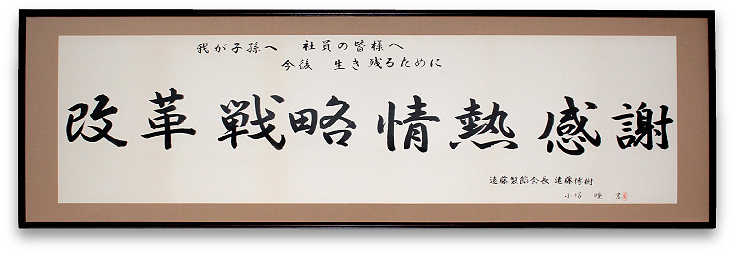 我が子孫へ 社員の皆様へ
今後 生き残るために
改革 戦略 情熱 感謝
遠藤製餡会長 遠藤博樹